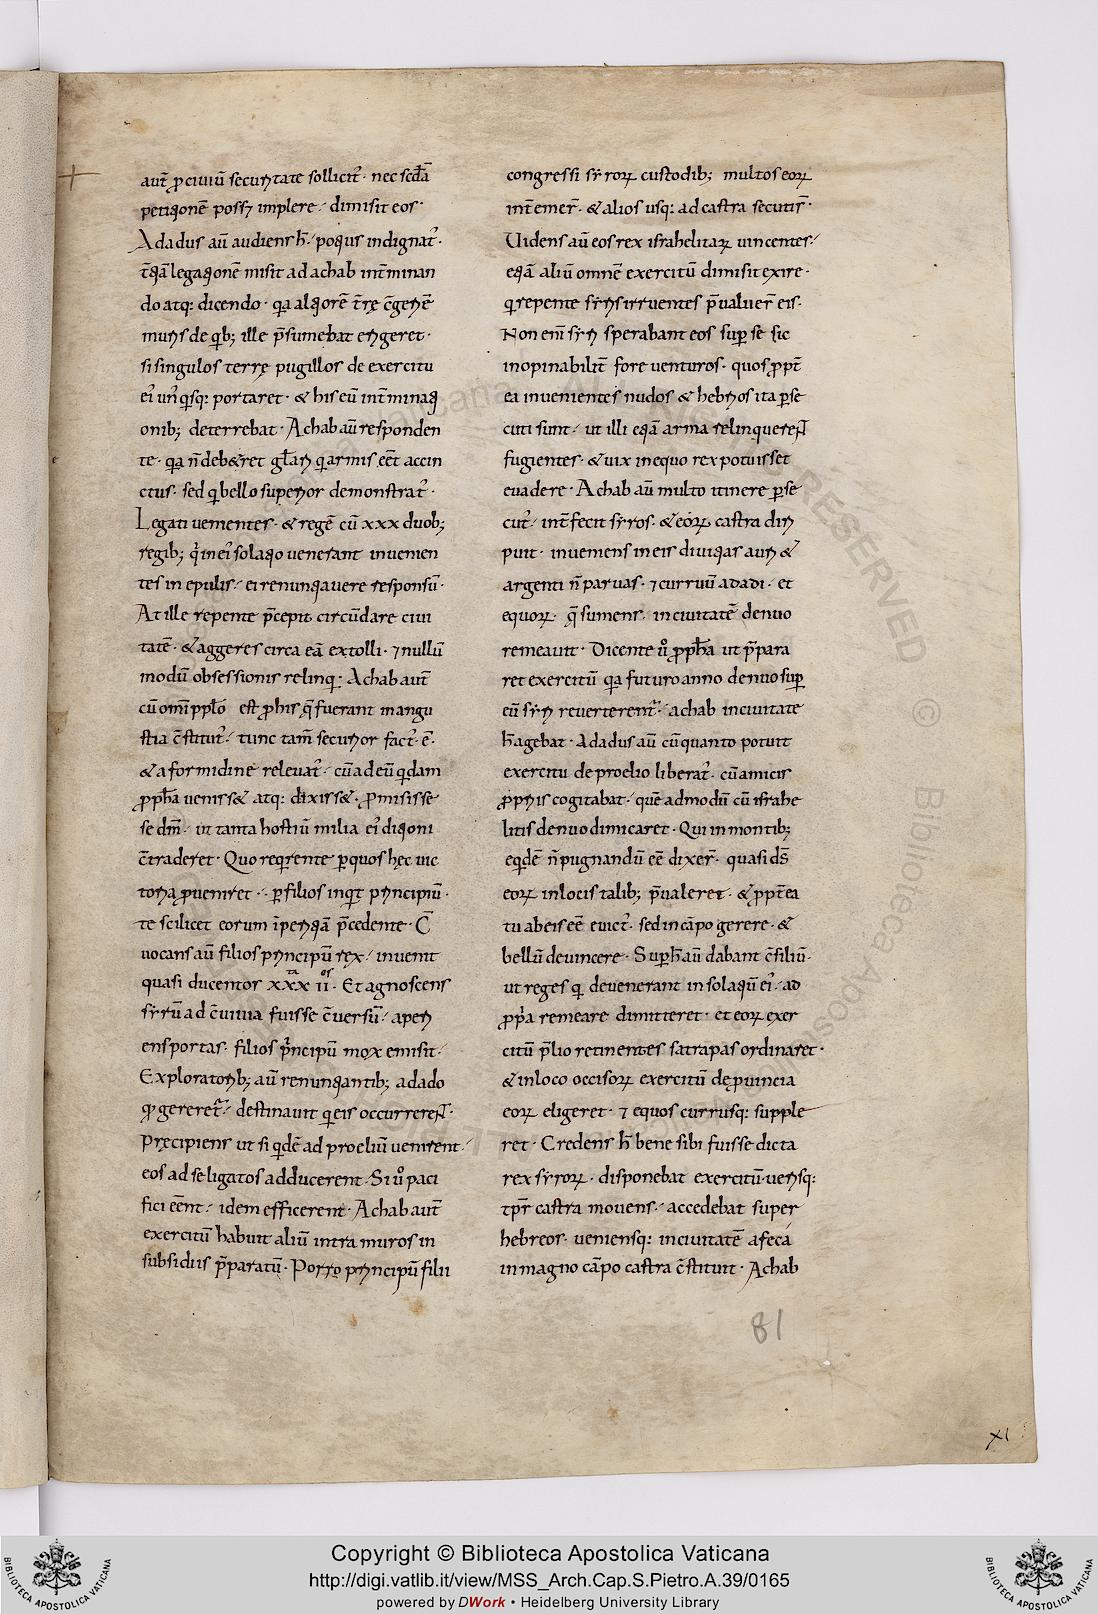 aut̄ ꝓ ciuiū securitate sollicit᷒· nec sc̄dā
petitionē poss; implere·/ dimisit eos·
Adadus aū audiens h̄·/ potius indignat᷒·
t̄qā legationē misit ad achab int̄minan
do atq: dicendo· qa altiorē t̄rę c̄gerē
muris de qib; ille p̄sumebat erigeret·
si singulos terrę pugillos de exercitu
ei᷒ un᷒ qisq: portaret· & his eū int̄minati
onib; deterrebat· Achab aū responden
te· qa n̄ deb&ret gl̄ari qi armis eēt accin
ctus· sed qi bello superior demonstrat᷒·
Legati uenientes· & regē cū xxx duob;
regib; qi in ei᷒ solatio uenerant inuenien
tes in epulis·/ ei renuntiauere responsū·
At ille repente p̄cepit circūdare ciui
tatē· & aggeres circa eā extolli· ⁊ nullū
modū obsessionis relinqi· Achab aut̄
cū omī pplō est ꝓ his q̄ fuerant in angu
stia c̄stitut᷒·/ tunc tam̄ securior fact᷒· ē·
& a formidine releuat᷒·/ cū ad eū qidam
ꝓph̄a uenisset atq: dixisset· ꝓmisisse
se dm̄·/ ut tanta hostiū milia ei᷒ ditioni
c̄traderet· Quo reqirente ꝑ quos hęc uic
toria ꝓueniret·/ ꝑ filios inqit principiū·
te scilicet eorum īperitiā p̄cedente· C̄
uocans aū filios principū rex·/ inuenit
quasi ducentos xxx ii· Et agnoscens
syrū ad c̄uiuia fuisse c̄uersū·/ aperi
ens portas· filios p̄ncipū mox emisit·/
Exploratorib; aū renuntiantib; adado
qd gereret᷒·/ destinauit qi eis occurrerent·
Pręcipiens ut si qidē ad proeliū uenirent·
eos ad se ligatos adducerent· Si u᷒o paci
fici eēnt·/ idem efficerent· Achab aut̄
exercitū habuit aliū intra muros in
subsidiis p̄paratū· Porro principū filii
congressi syrorꝝ custodib; multos eorꝝ
int̄emer̄· & alios usq: ad castra secuti sr̄·
Uidens aū eos rex israhelitarꝝ uincentes·/
etiā aliū omnē exercitū dimisit exire·
qi repente syris irruentes p̄ualuer̄ eis·
Non eni syri sperabant eos suꝑ se sic
inopinabilit̄ fore uenturos· quos ꝓpt̄
ea inuenientes nudos & hebrios ita ꝑse
cuti sunt·/ ut illi etiā arma relinquerent
fugientes· & uix in equo rex potuisset
euadere· Achab aū multo itinere ꝑse
cut᷒·/ int̄fecit syros· & eorꝝ castra diri
puit· inueniens in eis diuitias auri &
argenti n̄ paruas· ⁊ curruū adadi· et
equorꝝ· q̄ sumens· in ciuitatē denuo
remeauit· Dicente u᷒o ꝓph̄a ut p̄para
ret exercitū qa futuro anno denuo suꝑ
eū syri reuerterent᷒·/ achab in ciuitate
h̄ agebat· Adadus aū cū quanto potuit
exercitu de proelio liberat᷒· cū amicis
ꝓpriis cogitabat·/ quē admodū cū israhe
litis denuo dimicaret· Qui in montib;
eqidē n̄ pugnandū eē dixer̄· quasi ds̄
eorꝝ in locis talib; p̄ualeret· & ꝓpt̄ea
tū ab eis eē euict᷒· sed in cāpo gerere· &
bellū deuincere· Suꝑ h̄ aū dabant c̄siliū·
ut reges qi deuenerant in solatiū ei᷒·/ ad
ꝓp̄a remeare dimitteret· et eorꝝ exer
citū p̄lio retinentes satrapas ordinaret·
& in loco occisorꝝ exercitū de ꝓuincia
eorꝝ eligeret· ⁊ equos currusq: supple
ret· Credens h̄ bene sibi fuisse dicta
rex syrorꝝ· disponebat exercitū· uerisq:
tp̄r castra mouens·/ accedebat super
hebreos· ueniensq: in ciuitatē afeca
in magno cāpo castra c̄stituit· Achab
81
XI
Copyright © Biblioteca Apostolica Vaticana
http://digi.vatlib.it/view/MSS_Arch.Cap.S.Pietro.A.39/0165
powered by DWork • Heidelberg University Library